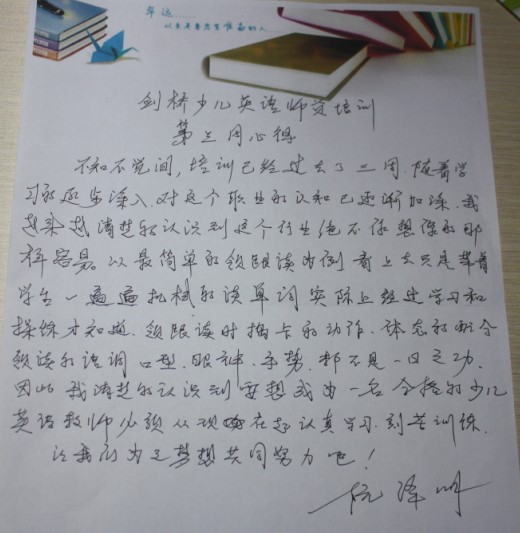 幸运……
以来是要忠실准备的人
剑桥少儿英语师资培训
第三周心得
不知不觉间，培训已经过去了三周。随着学
习的逐步深入，对这个职业的认知已逐渐加深。我
越来越清楚的认识到这个行业绝不像想像的那
样容易。以最简单的领跟读为例看上去只是带着
学生一遍遍机械的读单词实际上经过学习和
操练才知道，领跟读时抽卡的动作、体态的配合
领读的语调口型、眼神、手势，都不是一日之功。
因此我清楚的认识到要想成为一名合格的少儿
英语教师必须从现在起认真学习、刻苦训练。
让我们为之梦想共同努力吧！